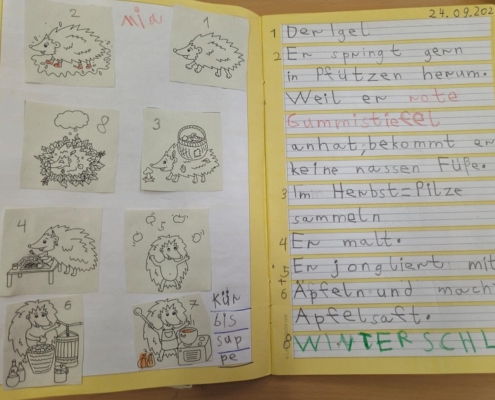 2
mia
1
8
3
4
5
6
7
Kür
bis
sup
pe
24.09.202
1 Der Igel
2 Er springt gern
in Pfützen herum.
Weil er rote
Gummistiefel
anhat, bekommt er
keine nassen Füße.
3 Im Herbst=Pilze
sammeln
4 Er malt.
5 Er jongliert mit
+
6 Äpfeln und mach
Apfelsaft.
8 WINTERSCHL